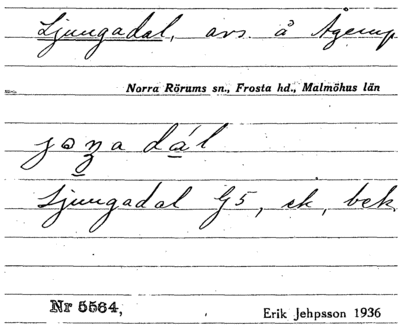 Ljungadal, avs. å Agerup
Norra Rörums sn., Frosta hd., Malmöhus län
Ljungadal G5, ek, bek.
Nr 5564,
Erik Jehpsson 1936